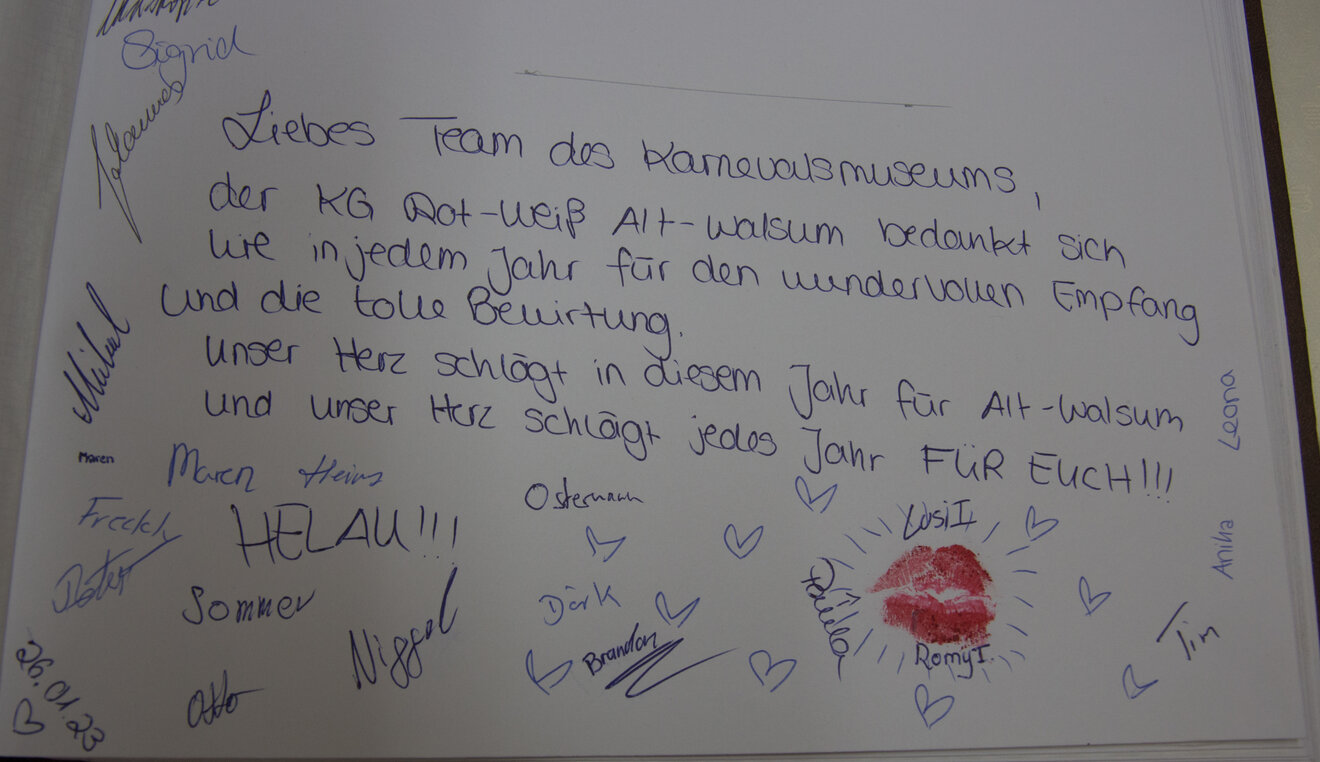 Sigrid
Johannes
Liebes Team des Karnevalsmuseums,
der KG Rot-Weiß Alt-Walsum bedankt sich
wie in jedem Jahr für den wundervollen Empfang
und die tolle Bewirtung.
Unser Herz schlägt in diesem Jahr für Alt-Walsum
und unser Herz schlägt jedes Jahr FÜR EUCH!!!
Michael
Leona
Maren
Maren Heins
Ostermann
HELAU!!!
Lusi I
Anika
Sommer
Dirk
Niggol
Brandon
Romy I.
Tim
Otto
26.01.23